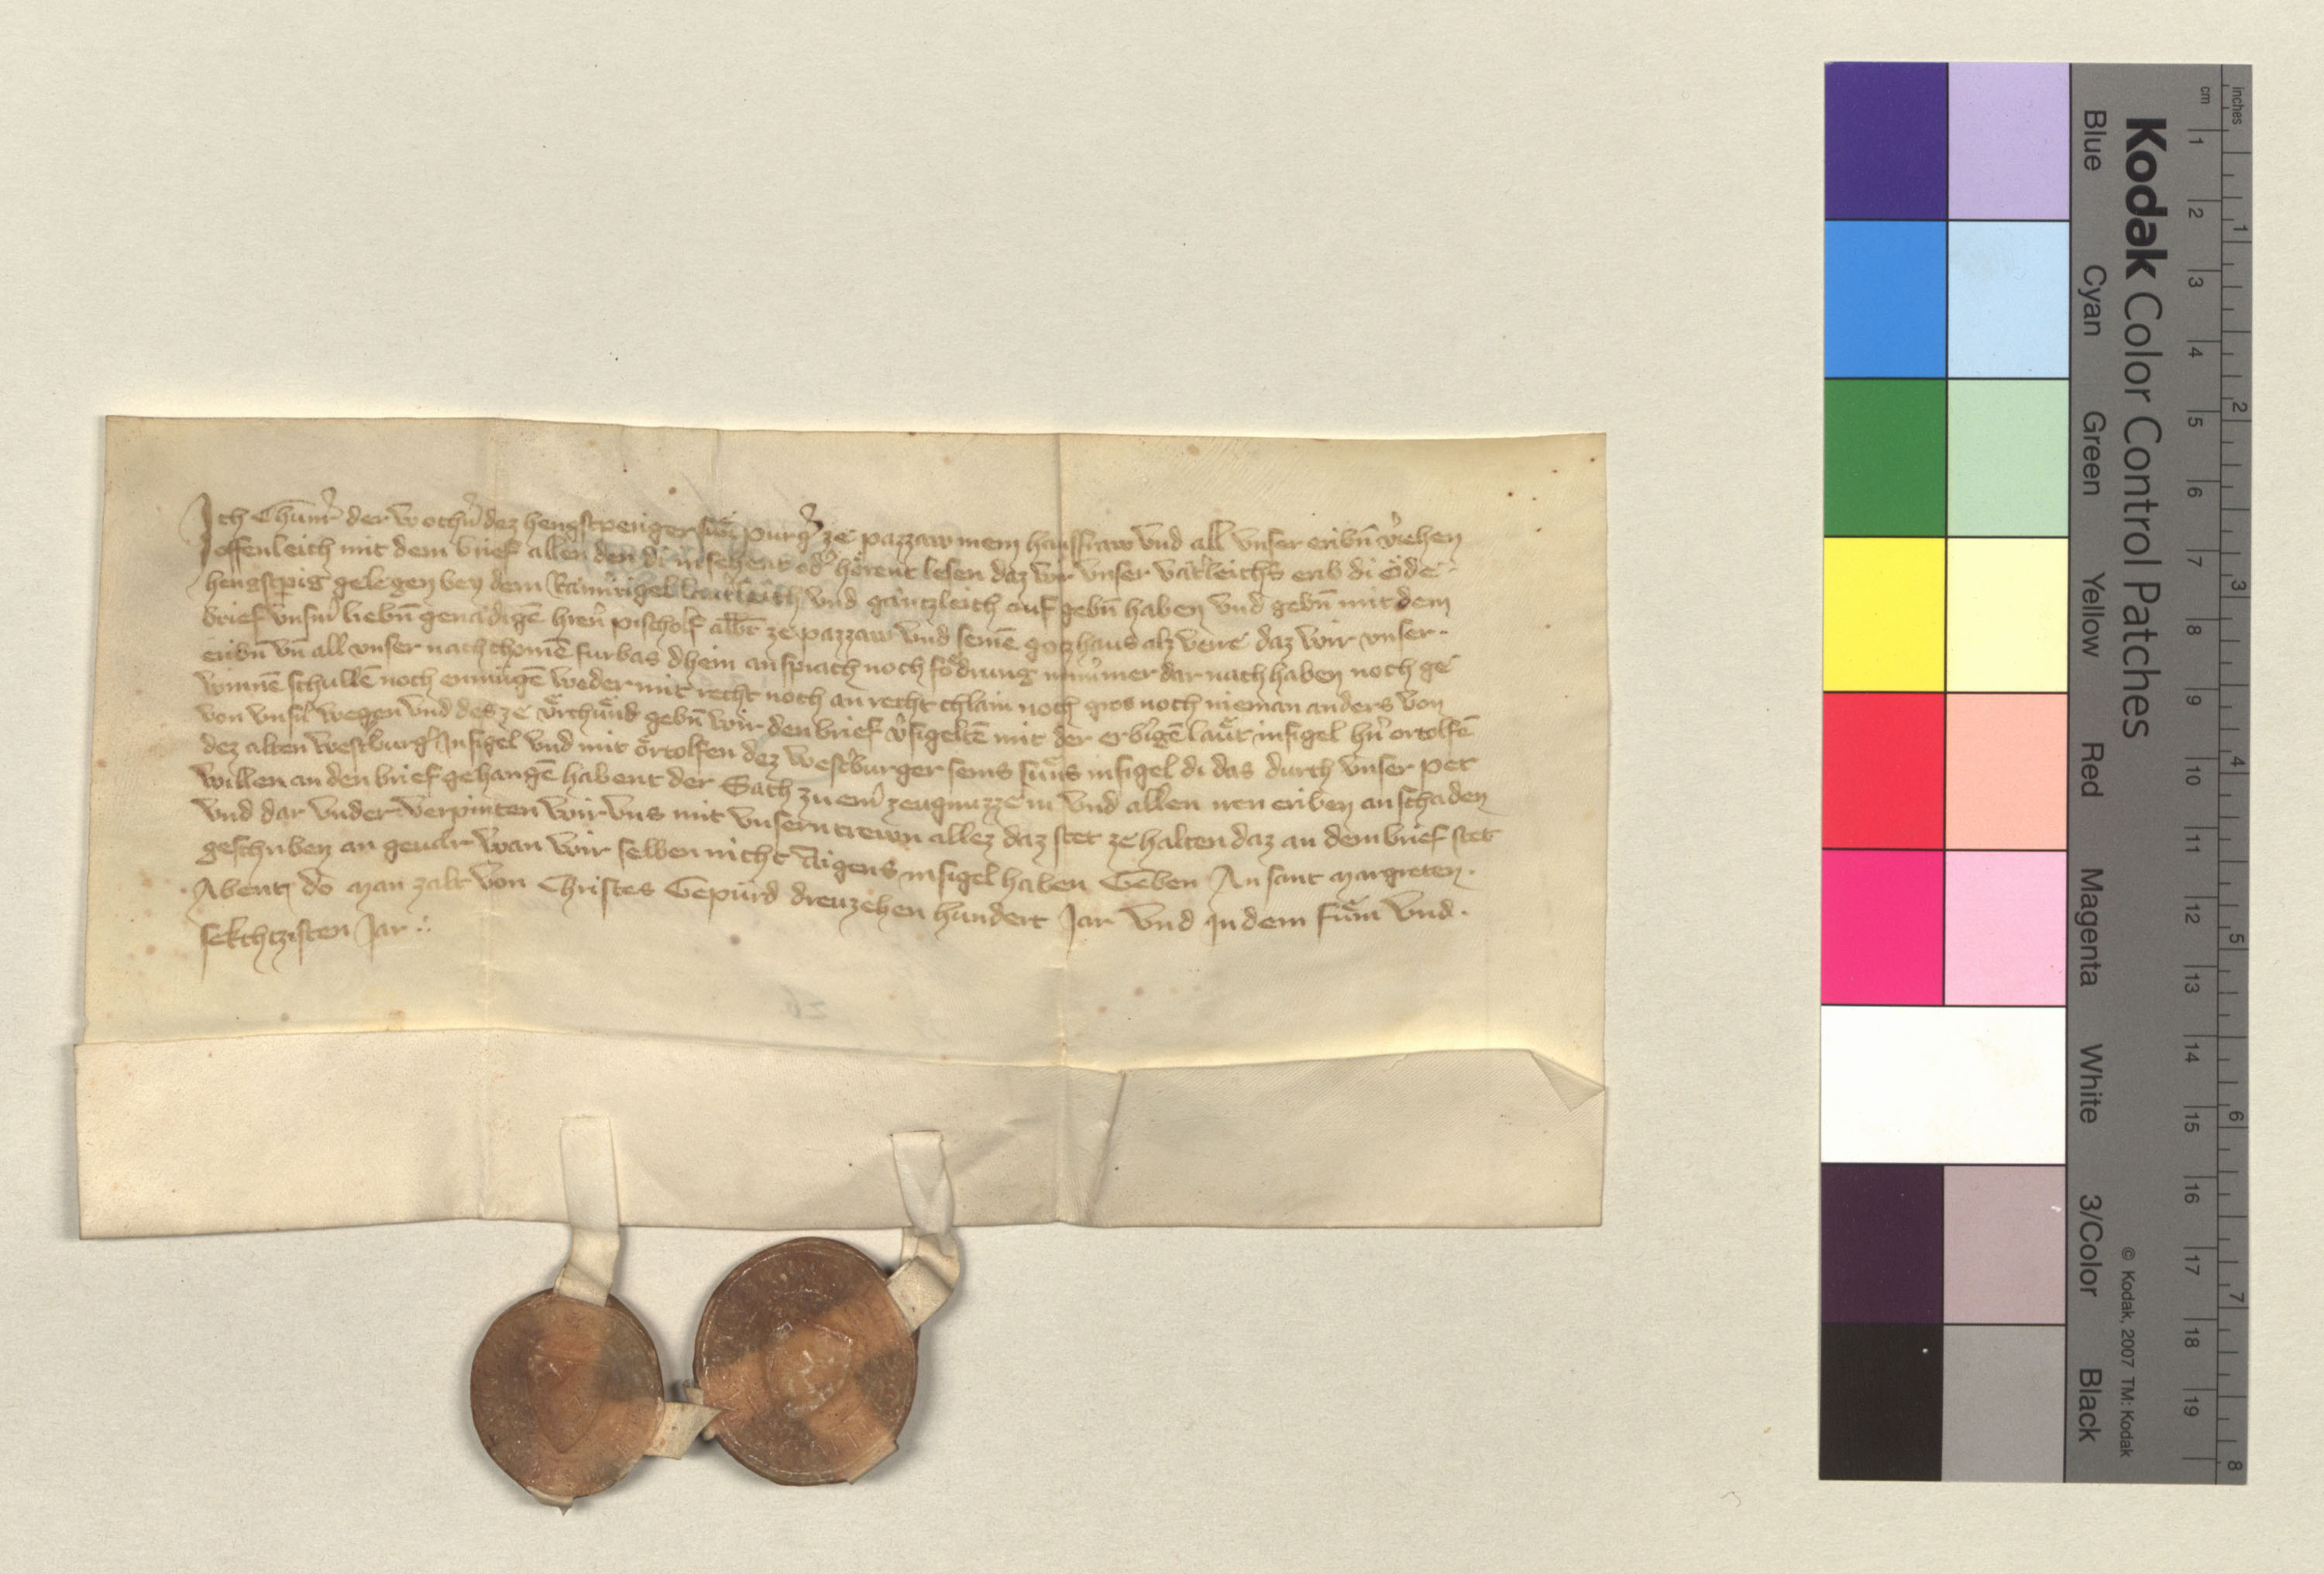 Ich Chunr̄ der wochn̄ dez hengstperiger sun purg ze pazzaw mein hausfraw vnd all vnser eribn̄ v̓iehen
offenleich mit dem brief allen den di in sehent od̓ hörent lesen daz wir vnser vät̓leichs erib di öde
hengstpig gelegen bey dem Ramrigel lautt̓leich vnd gäntzleich auf gebn̄ haben vnd gebn̄ mit dem
brief vnsm̓ liebn̄ genädigē hren̓ pischolf albr̄ ze pazzaw vnd seinē gozhaus alz verre daz wir vnser
eribn̄ vn̄ all vnser nachchomē furbas dhein ansprach noch födrung nimm̓mer dar nach haben noch ge
winnē schullē noch enmügē weder mit recht noch an recht chlain noch gros noch nieman anders von
von vnsn̓ wegen vnd des ze vrchünd gebn̄ wir den brief v̓sigeltē mit der erb̓igē läut insigel hn̓ ortolfē
dez alten westburg̓ Insigel vnd mit örtolfen dez west̓burger seins suns insigel di das durch vnser pet
willen an den brief gehangē habent der Sach zu em̓ zeugnuzze in vnd allen iren eriben an schaden
vnd dar vnder verpinten wir vns mit vnsern trewn allez daz stet ze halten daz an dem brief stet
geschriben an geuär wan wir selben nicht aigens insigel haben Geben An sant margreten
Abent do man zalt von Christes Gepürd dreuzehen hundert Jar vnd in dem fümf vnd
sekchtzisten Jar
Kodak Color Control Patches
© Kodak, 2007 TM: Kodak
Blue Cyan Green Yellow Red Magenta White 3/Color Black
cm 1 2 3 4 5 6 7 8 9 10 11 12 13 14 15 16 17 18 19
inches 1 2 3 4 5 6 7 8